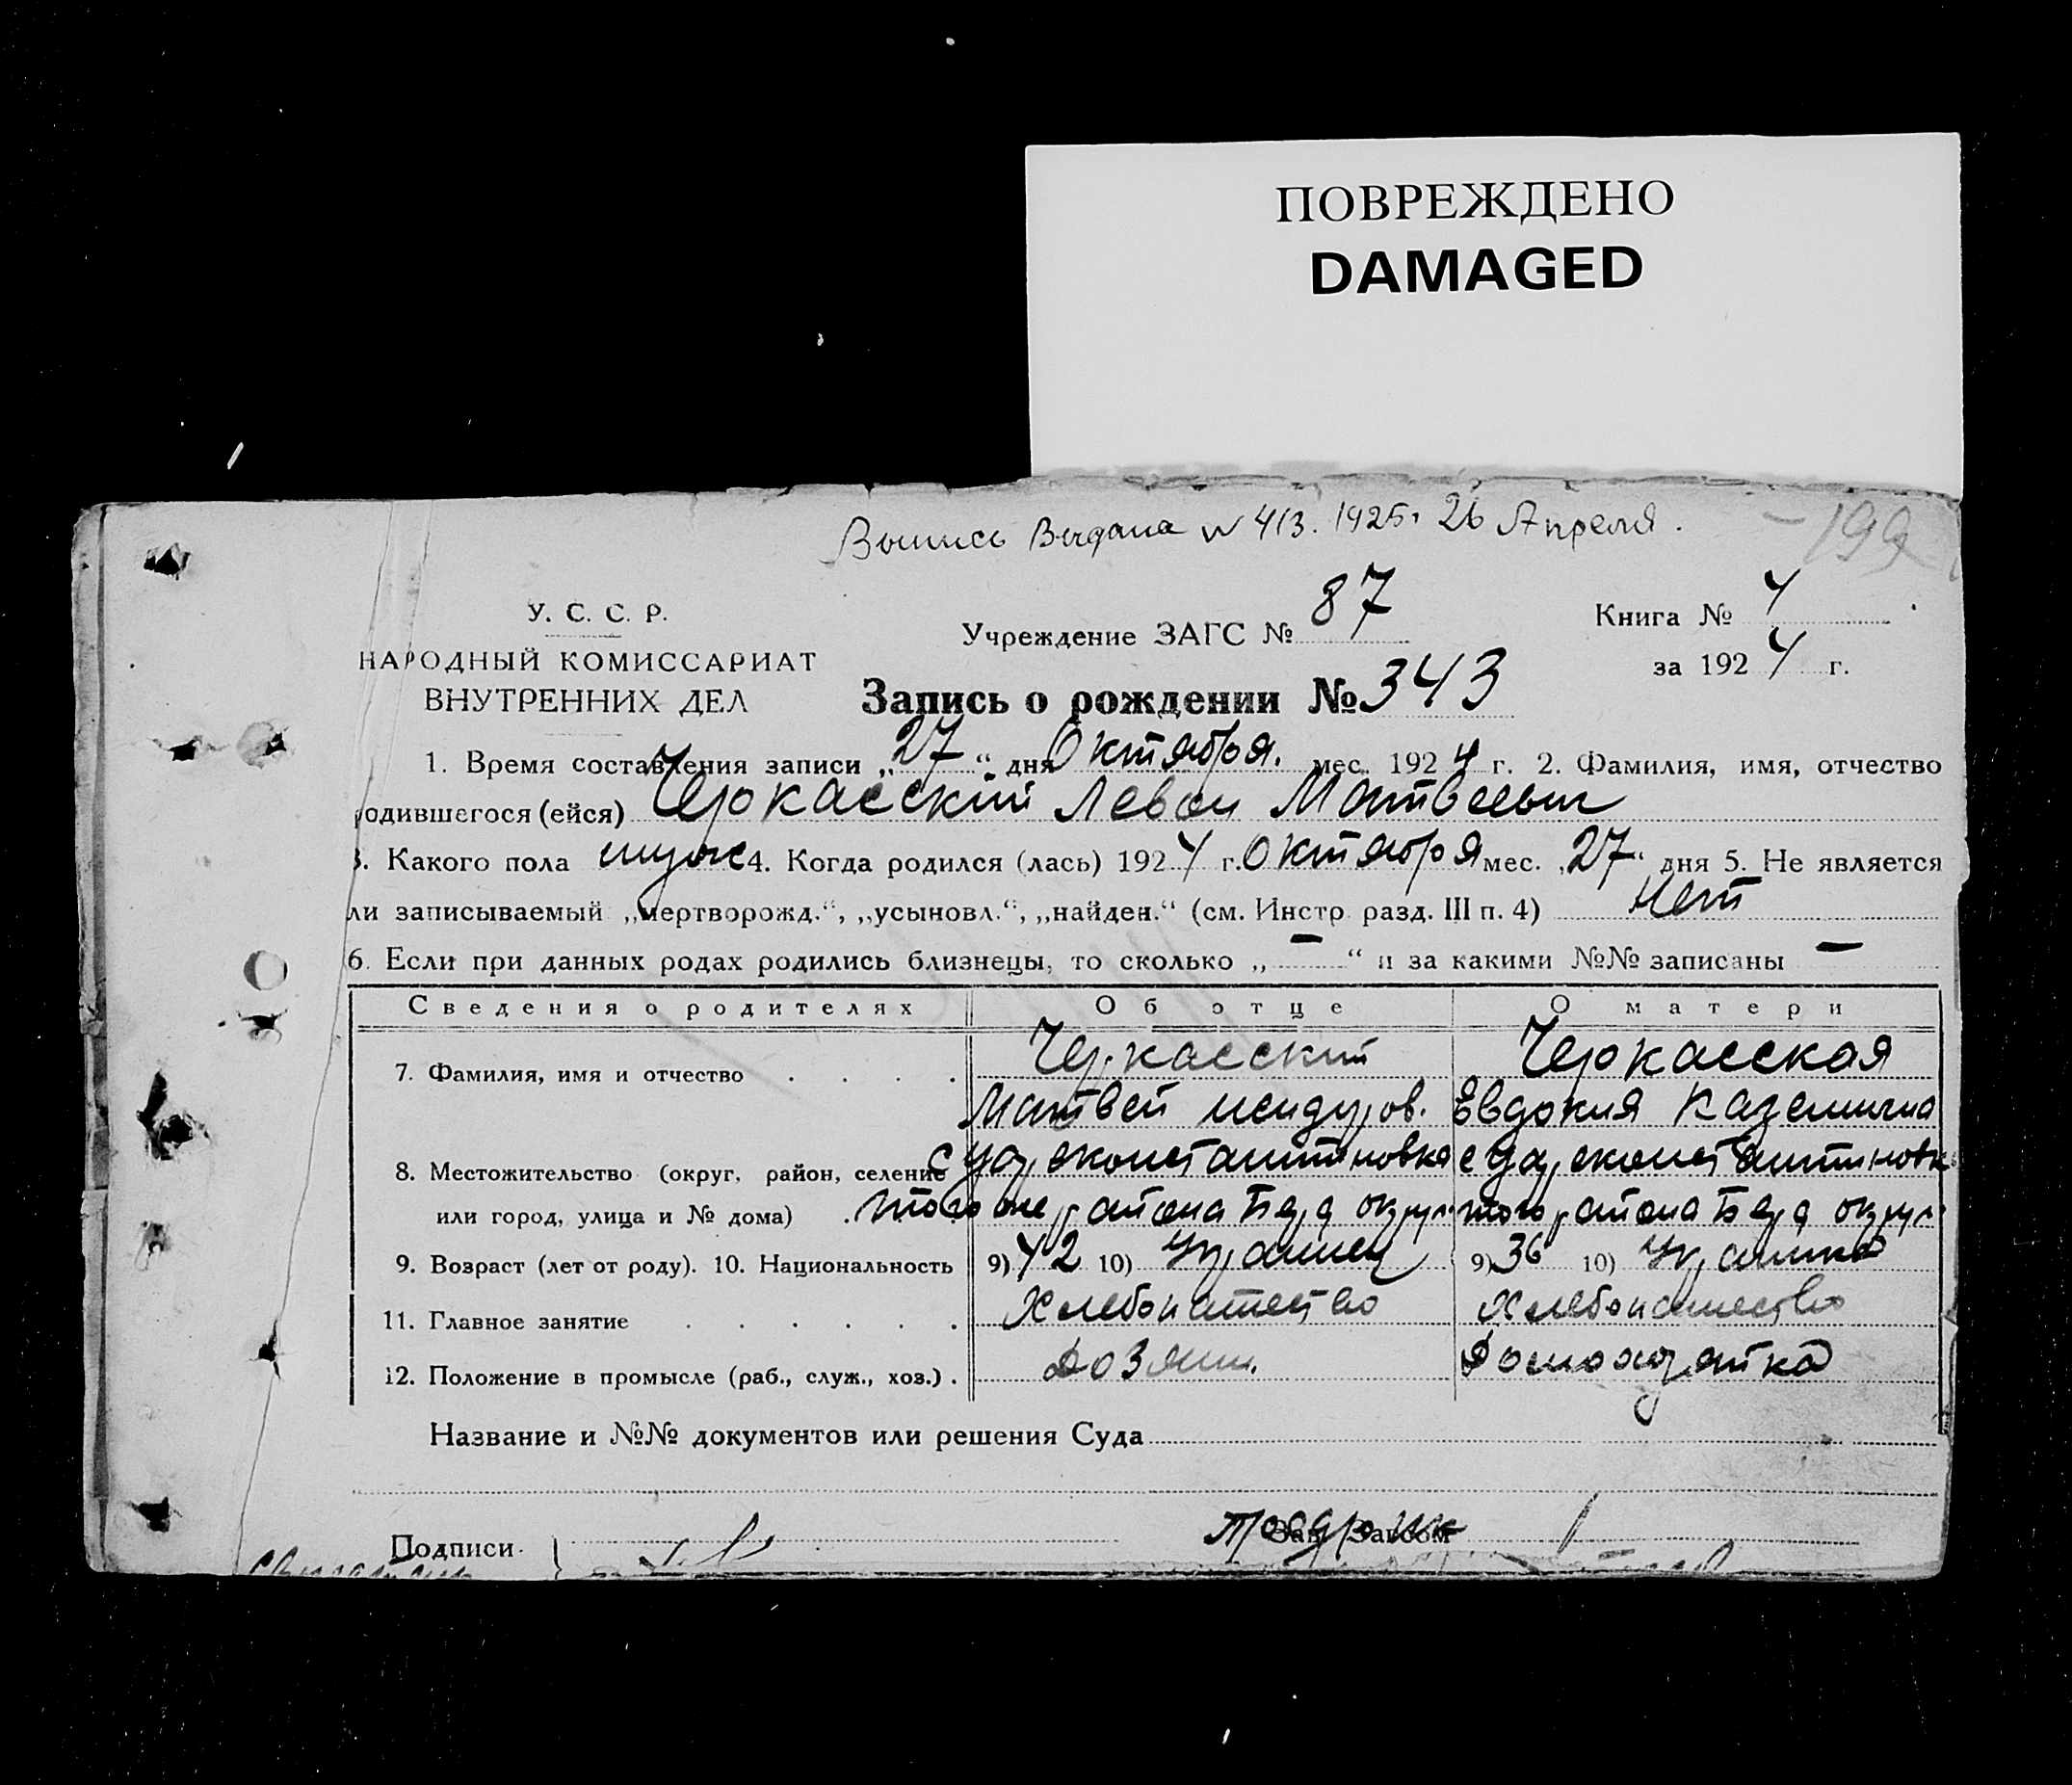 ПОВРЕЖДЕНО
DAMAGED
Выпись Выдана N 413. 1925 г 26 Апреля.
199
У. С. С. Р.
НАРОДНЫЙ КОМИССАРИАТ
ВНУТРЕННИХ ДЕЛ
Учреждение ЗАГС № 87
Книга № 4
за 1924 г.
Запись о рождении № 343
1. Время составления записи „27“ дня Октября. мес. 1924 г. 2. Фамилия, имя, отчество
одившегося (ейся) Черкасский Левон Матвеевич
3. Какого пола муж 4. Когда родился (лась) 1924 г. Октября мес. „27“ дня 5. Не является
ли записываемый „мертворожд.“, „усыновл.“, „найден.“ (см. Инстр. разд. III п. 4) Нет
6. Если при данных родах родились близнецы, то сколько „—“ и за какими №№ записаны —
Сведения о родителях Об отце О матери
7. Фамилия, имя и отчество . . . . Черкасский Черкасская
Матвей исидоров. Евдокия
8. Местожительство (округ, район, селение с с
или город, улица и № дома) . того же района Берд округ того района Берд округ
9. Возраст (лет от роду). 10. Национальность 9) 42 10) Украинец 9) 36 10) Украинка
11. Главное занятие . . . . . . Хлебопашество Хлебопашество
12. Положение в промысле (раб., служ., хоз.) . хозяин. Домохозяйка
Название и №№ документов или решения Суда
Подписи Зав. Загсом